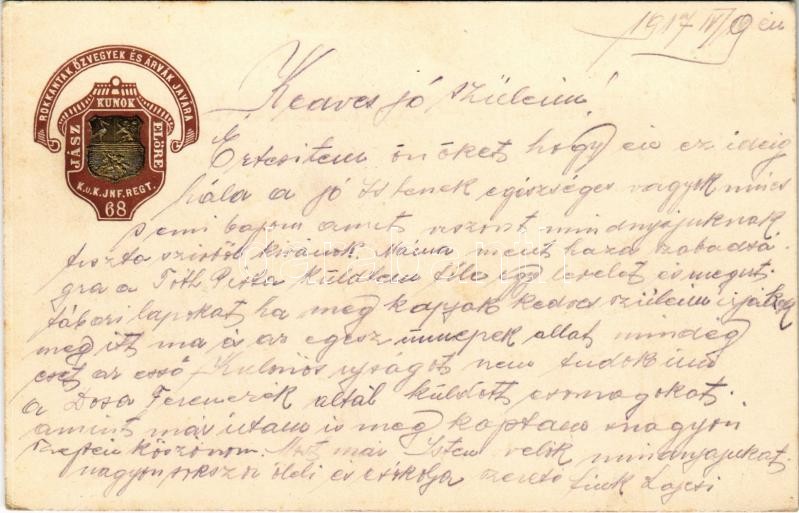 1917 IV/9 én
ROKKANTAK, ÖZVEGYEK ÉS ÁRVÁK JAVÁRA
KUNOK
JÁSZ
ELŐRE
K.u.K. JNF. REGT.
68
Kedves jó szüleim!
Értesitem önöket hogy én ez ideig
hála a jó Istenek egészséges vagyok nincs
semi bajom amit viszont mindnyájuknak
tiszta szivből kivánok. Máma ment haza szabadsá-
gra a Tóth Piska küldtem tőle egy levelet és
tábori lapokat ha meg kapják kedves szüleim irják
meg itt ma és az egész ünnepek allat mindég
eset az eső Kulonös ujságot nem tudok irni
a Dosa Ferenczék által küldött csomagokat.
amint már irtam is meg kaptam nagyon
szepen köszönom. Most már Isten velük mindnyájukat
nagyon sokszor öleli és csókolja szerető fiuk Lajcsi